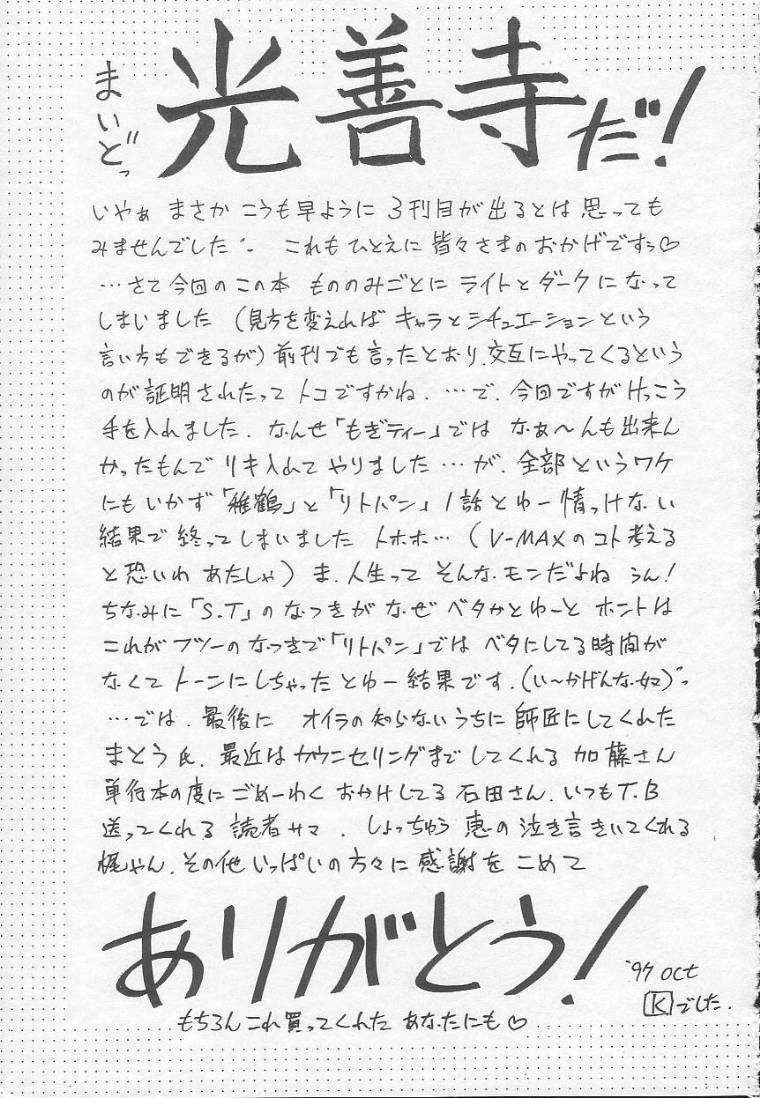 まいどっ
光善寺だ!
いやぁ まさか こうも早ように 3刊目が出るとは 思っても
みませんでした これもひとえに皆々さまのおかげですぅ♡
…さて今回のこの本 もののみごとに ライトとダークになって
しまいました (見方を変えれば キャラとシチュエーションという
言い方もできるが) 前刊でも言ったとおり、交互にやってくるという
のが証明されたって トコですかね. …で、今回ですが けっこう
手を入れました. なんせ「もぎティー」では なぁ〜んも出来ん
かったもんで リキ入れて やりました…が、全部というワケ
にもいかず「雅鶴」と「リトパン」1話とゆー情っけない
結果で終ってしまいました トホホ…(V-MAXのコト考える
と恐いわ あたしゃ) ま、人生って そんな、モンだよね うん!
ちなみに「S.T」のなつきが なぜ ベタかとゆーと ホントは
これが フツーのなつきで「リトパン」では ベタにしてる時間が
なくて トーンにしちゃった とゆー結果です.(い〜かげんな奴)
…では、最後に オイラの知らないうちに 師匠にしてくれた
まとう氏、最近は カウンセリングまでしてくれる 加藤さん
単行本の度に ごめーわく おかけしてる 石田さん、いつもT.B
送ってくれる 読者サマ、しょっちゅう 恵の泣き言きいてくれる
梶やん、その他いっぱいの方々に 感謝を こめて
ありがとう!
'97 oct
Kでした.
もちろん これ買ってくれた あなたにも♡